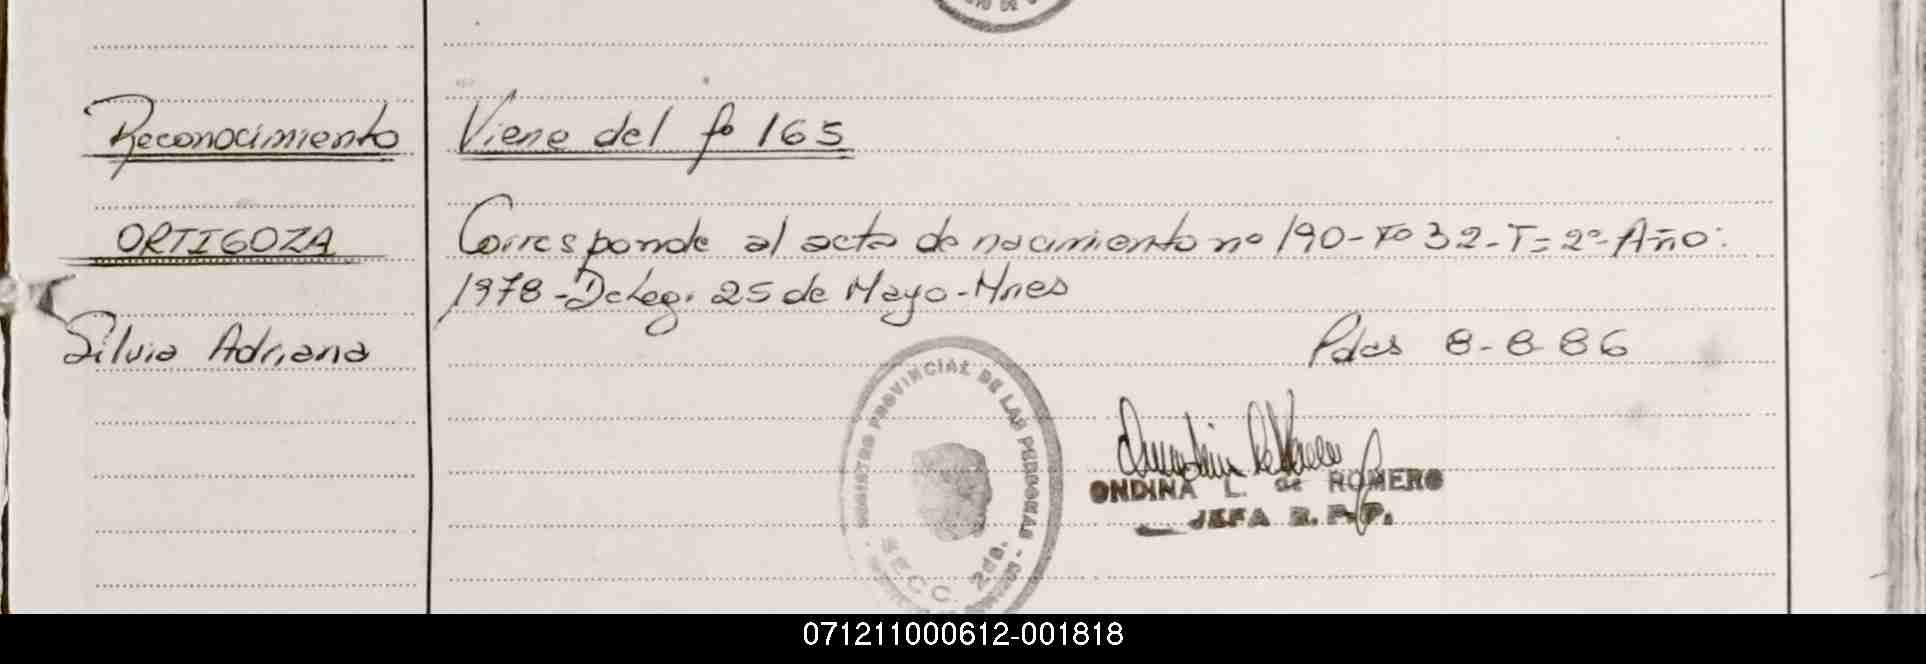 Reconocimiento
Viene del fo 165
ORTIGOZA
Corresponde al acta de nacimiento nº 190-Fo 32-T=2º-Año:
1978-Deleg. 25 de Mayo-Mnes
Silvia Adriana
Pdas 8-8-86
REGISTRO PROVINCIAL DE LAS PERSONAS
SECC. 2da.
ONDINA L. de ROMERO
JEFA R.P.P.
071211000612-001818